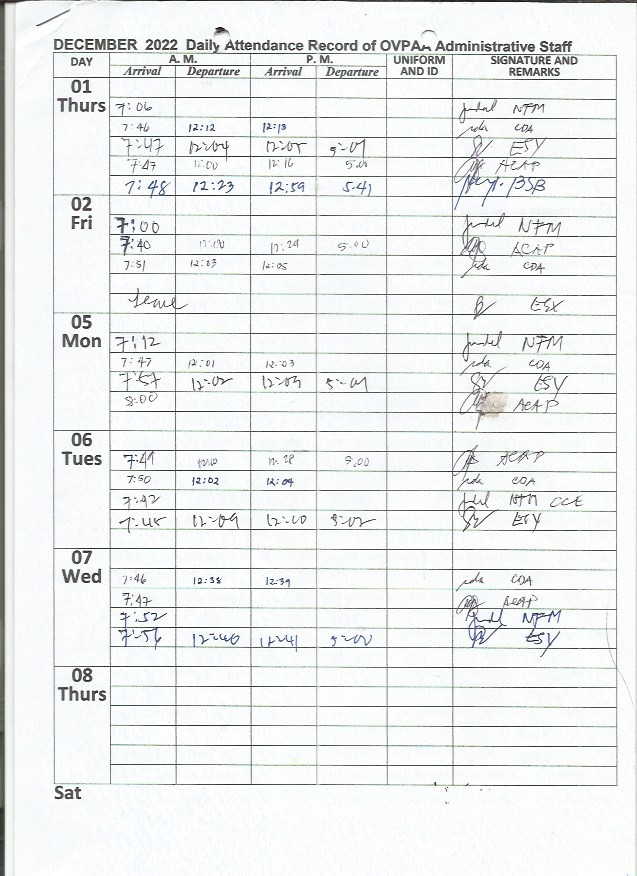 DECEMBER 2022 Daily Attendance Record of OVPAA Administrative Staff
DAY A. M. P. M. UNIFORM AND ID SIGNATURE AND REMARKS
Arrival Departure Arrival Departure
01 Thurs
7:06 NFM
7:46 12:12 12:13 CDA
7:47 12:04 12:05 5-01 ESY
7:47 12:00 12:16 5:00 ACAP
7:48 12:23 12:59 5-41 BSB
02 Fri
7:00 NFM
7:40 12:29 5:00 ACAP
7:51 12:03 12:05 CDA
Leave ESY
05 Mon
7:12 NFM
7:47 12:01 12:03 CDA
7:57 12:02 12:03 5-01 ESY
8:00 ACAP
06 Tues
7:41 5:00 ACAP
7:50 12:02 12:04 CDA
7:42 NFM CCE
7:45 12:09 12:10 5-02 ESY
07 Wed
7:46 12:38 12:39 CDA
7:47 ACAP
7:52 NFM
7:56 12:40 12:41 5-00 ESY
08 Thurs
Sat